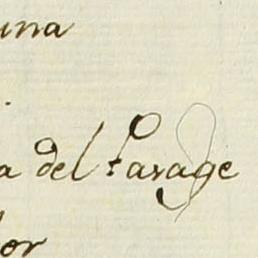 una
a del Parage
or